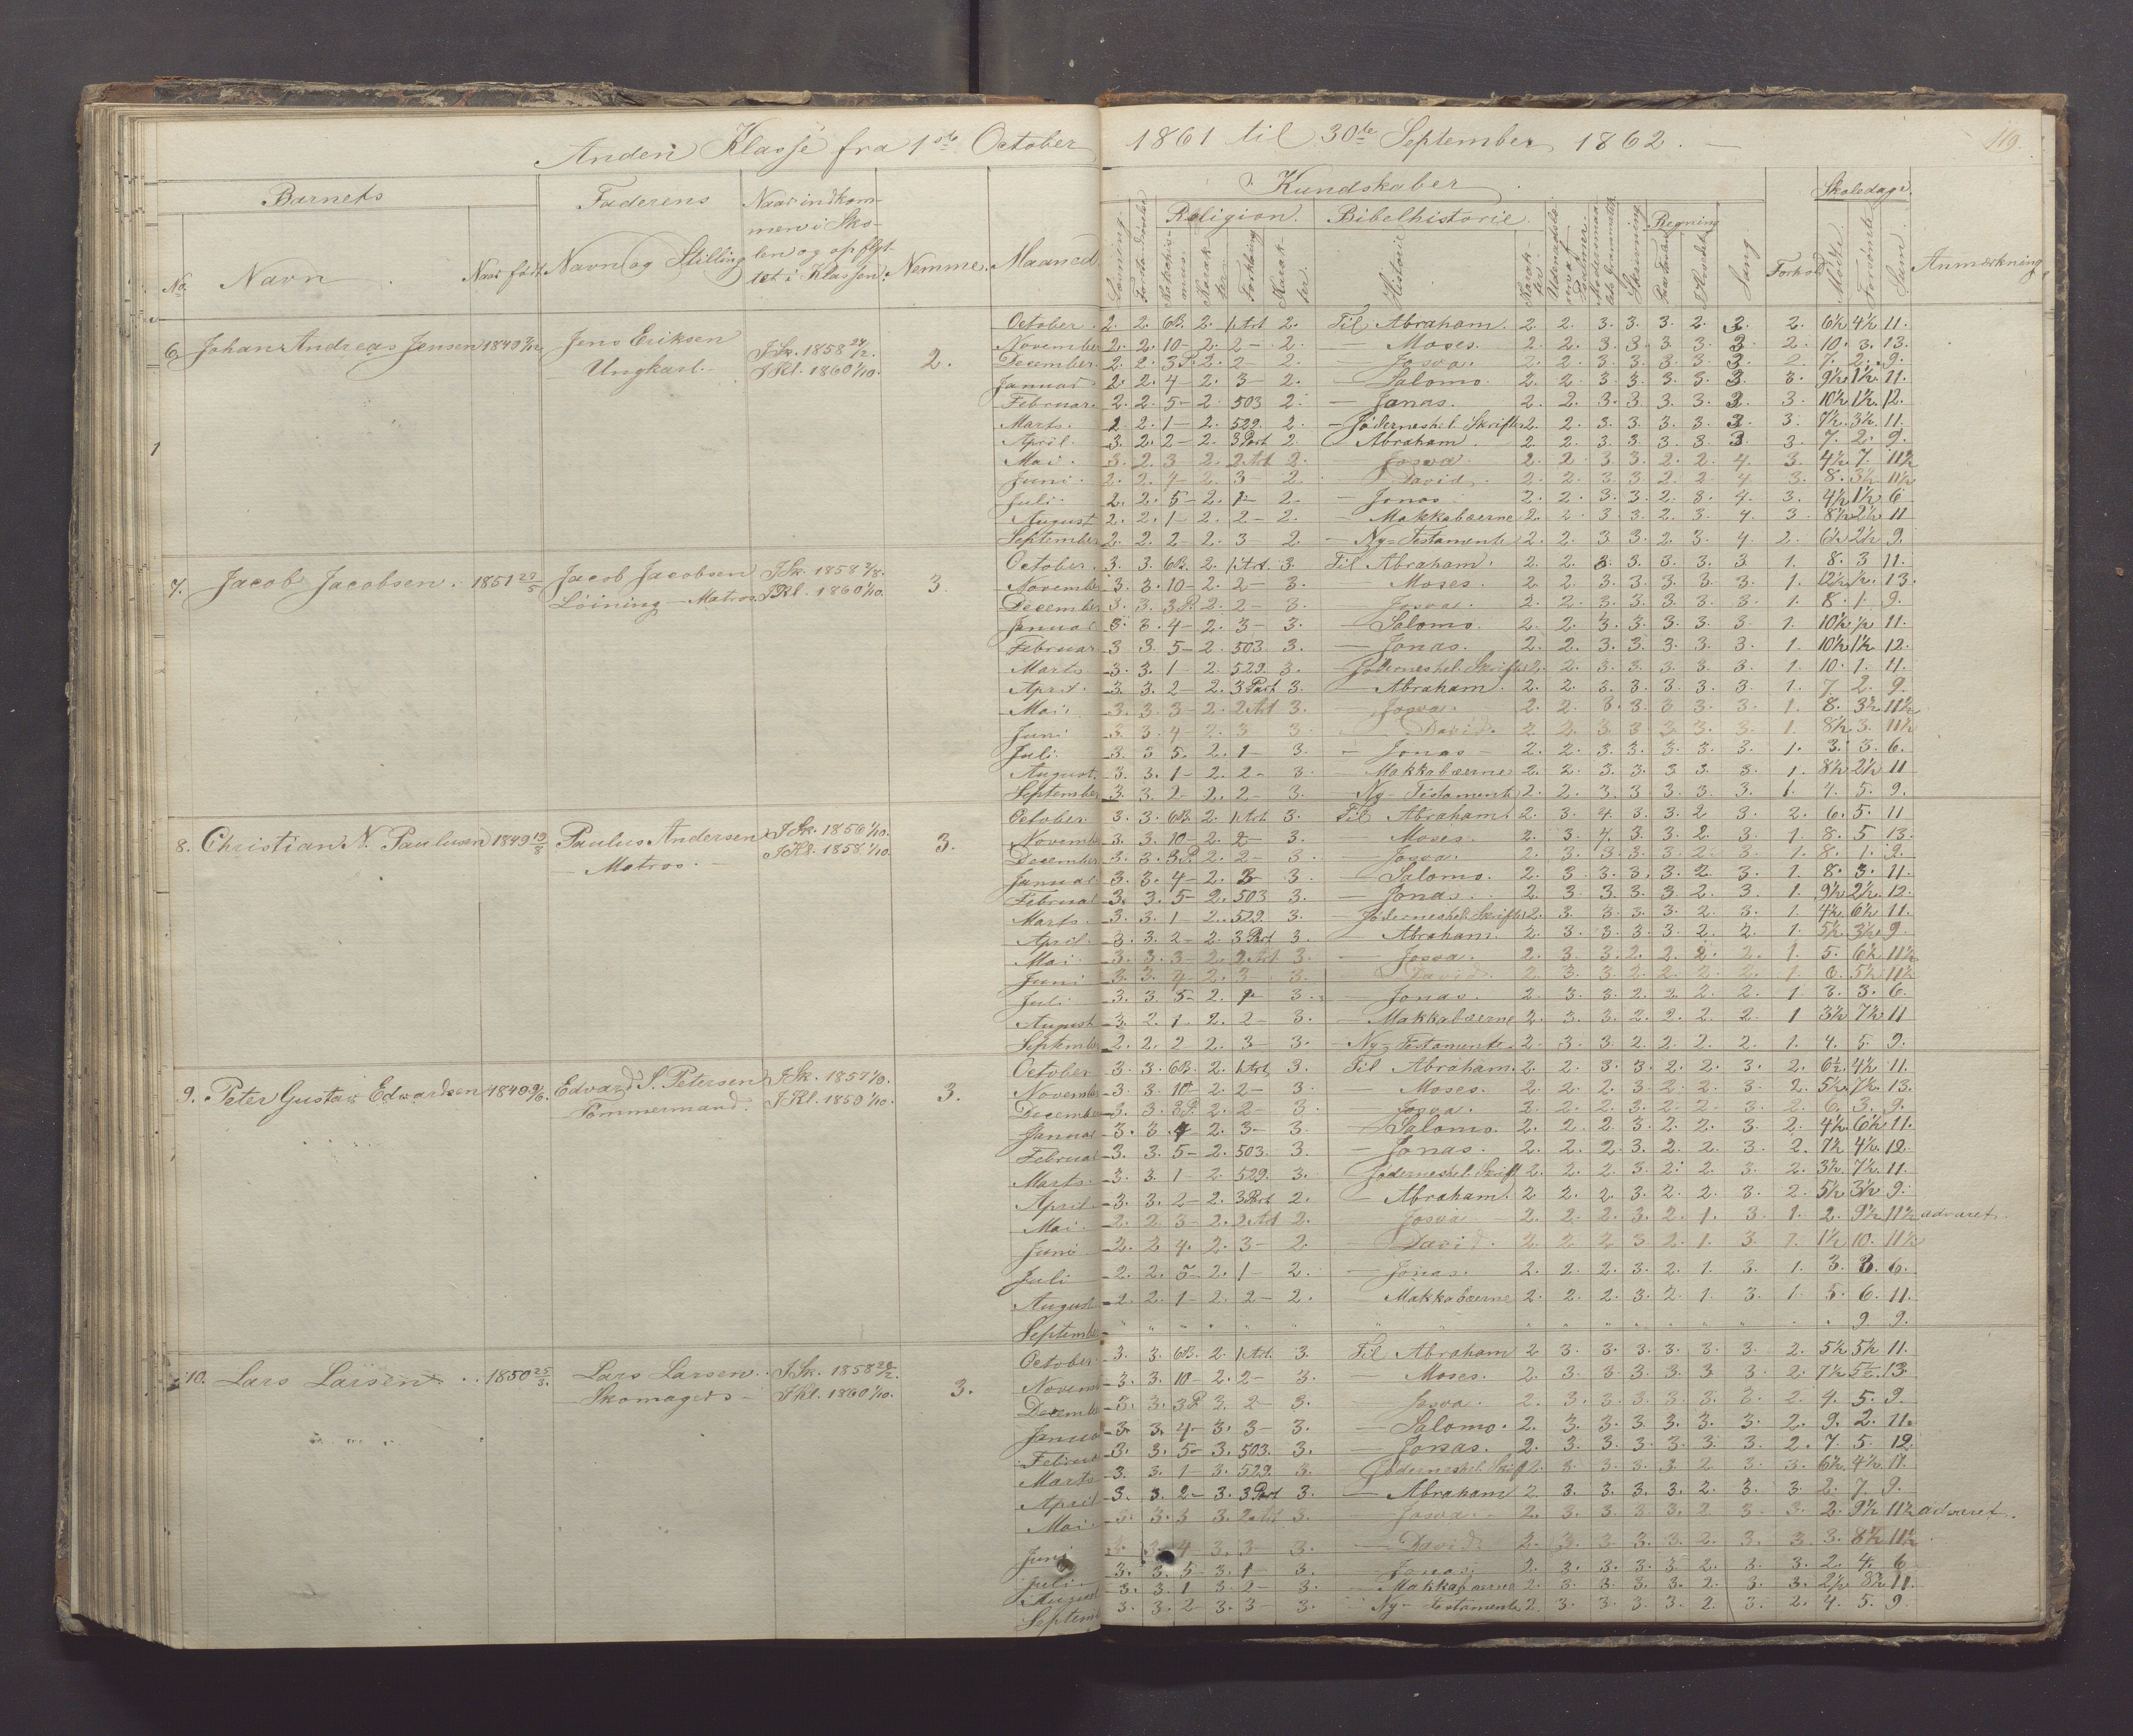 Anden Klasse fra 1ste October 1861 til 30te September 1862. 119.
Barnets Faderens Naar indkommen i Skolen og opflyttet i Klassen. Nemme. Maaned Kundskaber Forhold Skoledage. Anmærkning
No. Navn Naar født Navn og Stilling Religion. Bibelhistorie. Regning Sang Mødte. Forsømte Sum.
6. Johan Andreas Jensen 1849 Jens Eriksen J Sk. 1858 2.
Ungkarl. J Kl. 1860 1/10.
October. 2. 2. 6B. 2. 1 Art 2. Til Abraham. 2. 2. 3. 3. 3. 2. 3. 2. 6½ 4½ 11.
November 2. 2. 10 - 2. 2 - 2. - Moses. 2. 2. 3. 3. 3. 3. 3. 2. 10. 3. 13.
December. 2. 2. 3P. 2. 2 - 2. - Josva. 2. 2. 3. 3. 3. 3. 3. 2. 7. 2. 9.
Januar. 2. 2. 4 - 2. 3 - 2. - Salomo. 2. 2. 3. 3. 3. 3. 3. 3. 9½ 1½ 11.
Februar. 2. 2. 5 - 2. 503 2. - Jonas. 2. 2. 3. 3. 3. 3. 3. 3. 10½ 1½ 12.
Marts. 2. 2. 1 - 2. 529. 2. - Jødernes hel. Skrifter 2. 2. 3. 3. 3. 3. 3. 3. 7½ 3½ 11.
April. 3. 2. 2 - 2. 3 Part 2. - Abraham. 2. 2. 3. 3. 3. 3. 3. 3. 7. 2. 9.
Mai. 3. 2. 3 2. 2 Art 2. - Josva. 2. 2. 3. 3. 2. 2. 4. 3. 4½ 7. 11½
Juni. 2. 2. 4 - 2. 3 - 2. - David. 2. 2. 3. 3. 2. 2. 4. 3. 8. 3½ 11½
Juli. 2. 2. 5 - 2. 1 - 2. - Jonas. 2. 2. 3. 3. 2. 3. 4. 3. 4½ 1½ 6
August 2. 2. 1 - 2. 2 - 2. - Makkabæerne 2. 2. 3. 3. 2. 3. 4. 3. 8½ 2½ 11
September 2. 2. 2 - 2. 3 - 2. - Ny-Testamente 2. 2. 3. 3. 2. 3. 4. 2. 6½ 2½ 9.
7. Jacob Jacobsen. 1851 27/5 Jacob Jacobsen J Sk. 1858 3.
Løining - Matros. J Kl. 1860 1/10.
October. 3. 3. 6B. 2. 1 Art. 3. Til Abraham. 2. 2. 3. 3. 3. 3. 3. 1. 8. 3 11.
November 3. 3. 10 - 2. 2 - 3. - Moses. 2. 2. 3. 3. 3. 3. 3. 1. 12½ ½ 13.
December 3. 3. 3P. 2. 2 - 3. - Josva. 2. 2. 3. 3. 3. 3. 3. 1. 8. 1. 9.
Januar 3. 3. 4 - 2. 3 - 3. - Salomo. 2. 2. 3. 3. 3. 3. 3. 1. 10½ ½ 11.
Februar 3 3. 5 - 2. 503 3. - Jonas. 2. 2. 3. 3. 3. 3. 3. 1. 10½ 1½ 12.
Marts 3. 3. 1 - 2. 529. 3. - Jødernes hel. Skrifter 2. 2. 3. 3. 3. 3. 3. 1. 10. 1. 11.
April. 3. 3. 2 - 2. 3 Part 3. - Abraham. 2. 2. 3. 3. 3. 3. 3. 1. 7. 2. 9.
Mai. 3. 3. 3 - 2. 2 Art 3. - Josva. 2. 2. 3. 3. 3. 3. 3. 1. 8. 3½ 11½
Juni 3. 3. 4 - 2. 3 3. - David. 2. 2. 3. 3. 3. 3. 3. 1. 8½ 3. 11½
Juli. 3. 3 5. 2. 1 - 3. - Jonas 2. 2. 3. 3. 3. 3. 3. 1. 3. 3. 6.
August. 3. 3. 1 - 2. 2 - 3. - Makkabæerne 2. 2. 3. 3. 3. 3. 3. 1. 8½ 2½ 11
September 3. 3. 2 - 2. 2 - 3. - Ny-Testamente 2. 2. 3. 3. 3. 3. 3. 1. 4. 5. 9.
8. Christian N. Paulusen 1849 19/8 Paulus Andersen J Sk. 1856 1/10. 3.
Matros. J Kl. 1858 1/10.
October. 3. 3. 6B. 2. 1 Art 3. Til Abraham. 2. 3. 4. 3. 3. 2 3. 2. 6. 5. 11
November 3. 3. 10 - 2. 2 - 3. Moses. 2. 3. 4. 3. 3. 2. 3. 1. 8. 5 13.
December 3. 3. 3P. 2. 2 - 3. - Josva. 2. 3. 3. 3. 3. 2. 3. 1. 8. 1. 9.
Januar 3. 3. 4 - 2. 3 3. - Salomo. 2. 3 3. 3. 3. 2. 3. 1. 8. 3. 11.
Februar 3. 3. 5 - 2. 503 3. - Jonas. 2. 3. 3. 3. 3. 2. 3. 1. 9½ 2½ 12.
Marts. 3. 3. 1 - 2. 529. 3. - Jødernes hel. Skrifter 2. 3. 3. 3. 3. 2. 3. 1. 4½ 6½ 11.
April. 3. 3. 2 - 2. 3 Part 3. - Abraham. 2. 3. 3. 3. 3. 2. 2. 1. 5½ 3½ 9.
Mai. 3. 3. 3 - 2. 2 Art 3. - Josva. 2. 3. 3. 2. 2. 2. 2. 1. 5. 6½ 11½
Juni 3. 3. 4 - 2. 3 3. - David. 2. 3. 3. 2. 2. 2. 2. 1. 6. 5½ 11½
Juli. 3. 3. 5 - 2. 1 - 3. - Jonas. 2. 3. 3. 2. 2. 2. 2. 1 3. 3. 6.
August 3. 2. 1 - 2. 2 - 3. - Makkabæerne 2. 3. 3. 2. 2. 2. 2. 1 3½ 7½ 11
September 2. 2. 2 2. 3 - 3. - Ny-Testamente. 2. 3. 3 2. 2. 2. 2. 1. 4. 5. 9.
9. Peter Gustav Edvardsen 1849 Edvard S. Petersen J Sk. 1857 1/10. 3.
Tømmermand. J Kl. 1859 1/10.
October 3. 3. 6B. 2. 1 Art 3. Til Abraham. 2. 2. 3. 3. 2. 2. 3. 2. 6½ 4½ 11.
November 3. 3. 10 2. 2 - 3. Moses. 2. 2. 2. 3. 2. 2. 3. 2. 5½ 7½ 13.
December 3. 3. 3P. 2. 2 - 3. Josva. 2. 2. 2. 3. 2. 2. 3. 2. 6. 3. 9.
Januar 3. 3. 4 - 2. 3 - 3. - Salomo. 2. 2. 2. 3. 2. 2. 3. 2. 4½ 6½ 11.
Februar 3. 3. 5 - 2. 503. 3. - Jonas. 2. 2. 2. 3. 2. 2. 3. 2. 7½ 4½ 12.
Marts. 3. 3. 1 - 2. 529. 3. Jødernes hel. Skrift 2. 2. 2. 3. 2. 2. 3. 2. 3½ 7½ 11.
April. 3. 3. 2 - 2. 3 Part 2. - Abraham. 2. 2. 2. 3. 2. 2. 3. 2. 5½ 3½ 9.
Mai. 2. 2. 3 - 2. 2 Art 2. - Josva 2. 2. 2. 3. 2. 1. 3. 1. 2. 9½ 11½ advaret.
Juni 2. 2 4. 2. 3 - 2. - David. 2. 2. 2 3 2. 1. 3. 1. 1½ 10. 11½
Juli 2. 2. 5 - 2. 1 - 2. - Jonas. 2. 2. 2. 3. 2. 1. 3. 1. 3. 3. 6.
August 2. 2. 1 - 2. 2 - 2. - Makkabæerne 2. 2. 2. 3. 2. 1. 3. 1. 5. 6. 11.
September " " " " " " " " " " " " " " " 9 9.
10. Lars Larsen. 1850 25/3. Lars Larsen. J Sk. 1858 3.
Skomager J Kl. 1860 1/10.
October. 3. 3. 6B. 2. 1 Art. 3 Til Abraham 2 3. 3. 3. 3. 3. 3. 2. 5½ 5½ 11.
Novemb 3. 3. 10 - 2. 2 - 3. - Moses. 2. 3. 3 3 3. 3 3. 2. 7½ 5½ 13
Decembe 3. 3. 3P 3. 2 - 3. - Josva. 2. 3. 3. 3. 3. 3. 3. 2. 4. 5. 9.
Januar 3. 3. 4 - 3. 3 - 3. - Salomo. 2. 3. 3. 3. 3. 3. 3. 2. 9. 2. 11.
Februa 3. 3. 5 - 3. 503. 3. - Jonas. 2. 3. 3. 3. 3. 3. 3. 2. 7. 5. 12
Marts 3. 3. 1 - 3. 529. 3. - Jødernes hel. Skrif 2. 3. 3. 3. 3. 2. 3. 3. 6½ 4½ 11.
April 3. 3. 2 - 3. 3 Part 3. - Abraham 2. 3. 3. 3. 3. 2. 3. 3. 2. 7. 9.
Mai. 3. 3. 3 3. 2 Art 3. - Josva. 2. 3. 3. 3. 3. 2 3. 3. 2. 9½ 11½ advaret.
Juni 3. 3. 4 - 3. 3 - 3. - David 2. 3. 3. 3. 3. 2. 3. 3. 3. 8½ 11½
Juli 3. 3. 5 - 3. 1 - 3. - Jonas. 2. 3. 3. 3. 3. 2. 3. 3. 2. 4. 6
August 3. 3. 1 3. 2 - 3. - Makkabæerne 2. 3. 3. 3. 3. 2. 3. 3. 2½ 8½ 11.
Septem 3. 3. 2 - 3. 3 - 3. Ny-Testamente 2. 3. 3. 3. 3. 2. 3. 2. 4. 5. 9.